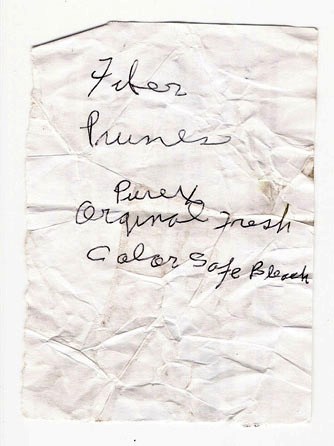 Fiber
Prunes
Purex
Orginal Fresh
Color Safe Bleach